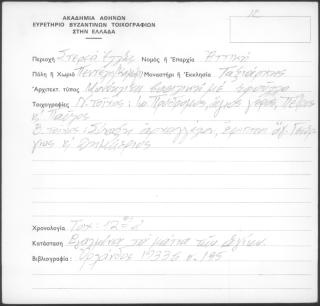 12
ΑΚΑΔΗΜΙΑ ΑΘΗΝΩΝ
ΕΥΡΕΤΗΡΙΟ ΒΥΖΑΝΤΙΝΩΝ ΤΟΙΧΟΓΡΑΦΙΩΝ
ΣΤΗΝ ΕΛΛΑΔΑ
Περιοχή Στερεά Ελλάς Νομός ή Επαρχία Αττική
Πόλη ή Χωριό Μοναστήρι ή Εκκλησία Ταξιάρχης
Αρχιτεκτ. τύπος Μονόκλιτη
Τοιχογραφίες Ν. τοίχος: Ιω. Πρόδρομος, Πέτρος
κ' Παύλος
Β. τοίχος: Σύναξη έφιπποι άγ. Γεώρ-
γιος κ' Δημήτριος
Χρονολογία Τοιχ: 12ος
Κατάσταση τα μάτια των αγίων
Βιβλιογραφία: Ορλάνδος 1933 σ. 195